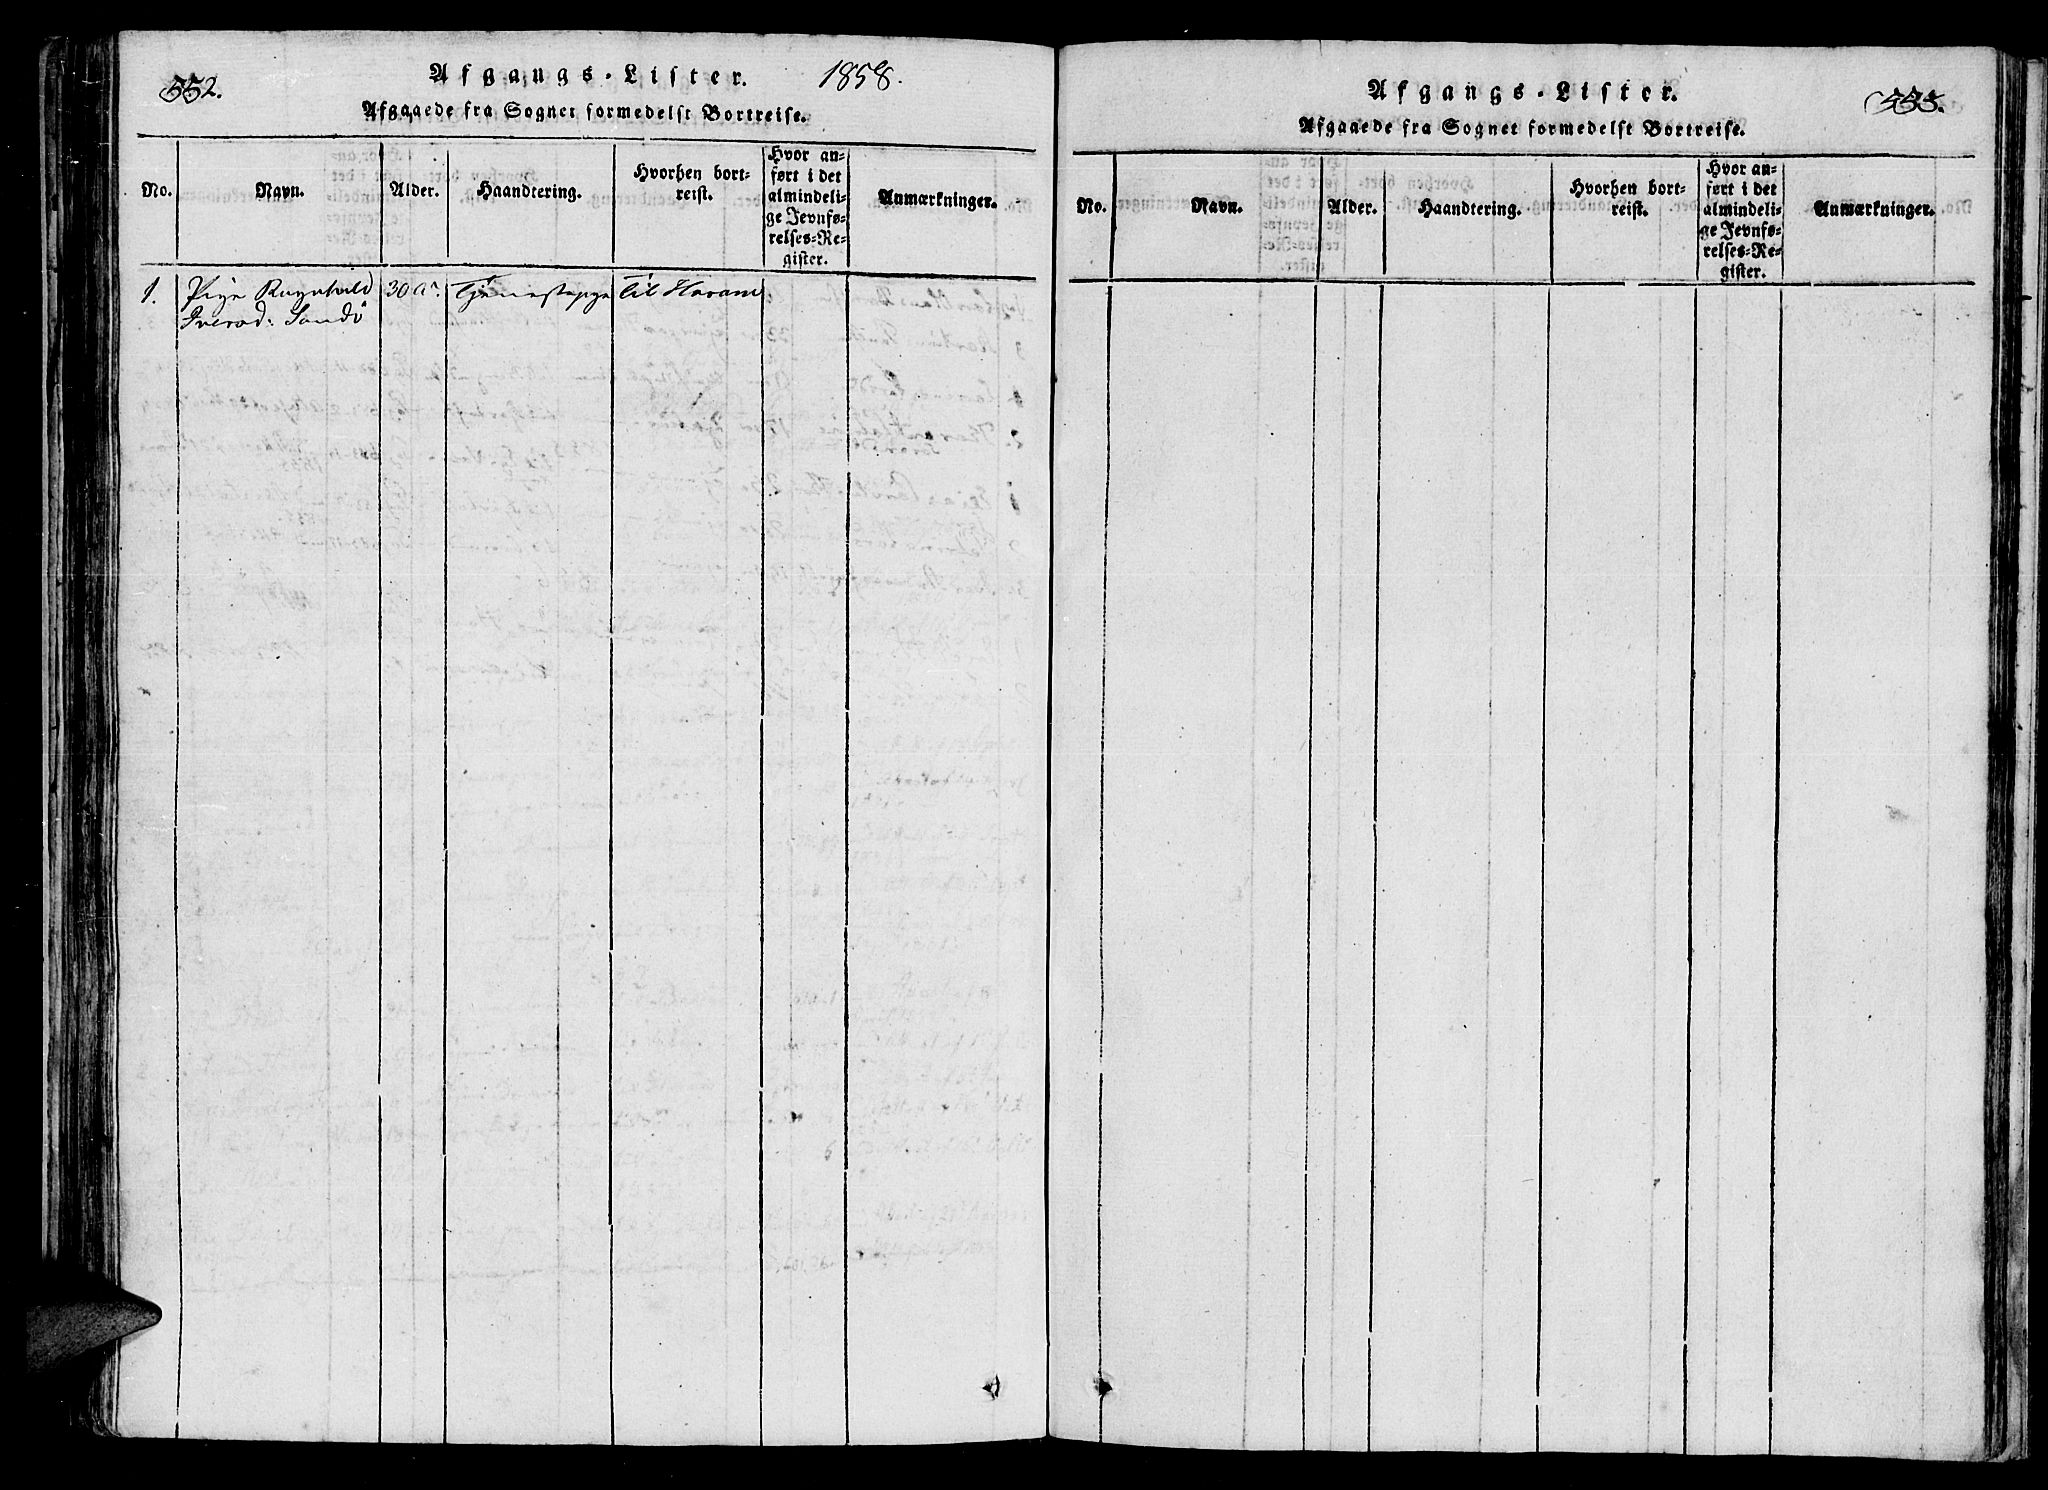 552.
Afgangs-Lister. 1858.
Afgaaede fra Sognet formedelst Bortreise.
No.
Navn.
Alder.
Haandtering.
Hvorhen bort-
reist.
Hvor an-
ført i det
almindeli-
ge Jevnfø-
relses-Re-
gister.
Anmærkninger.
1. Pige Ragnhild 30 Til Haram
Iversd: Sandö
Afgangs-Lister.
Afgaaede fra Sognet formedelst Bortreise.
No.
Navn.
Alder.
Haandtering.
Hvorhen bort-
reist.
Hvor an-
ført i det
almindeli-
ge Jevnfø-
relses-Re-
gister.
Anmærkninger.